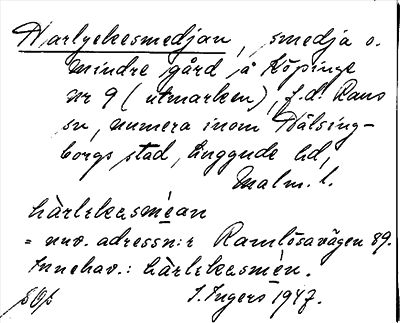 Harlyckesmedjan, smedja o.
mindre gård å Köpinge
nr 9 (utmarken), f.d. Raus
sn, numera inom Hälsing-
borgs stad, Luggude hd,
Malm. l.
hàrlekesméan
= nuv. adressn:r Ramlösavägen 89.
Innehav.: hàrlekesmén.
S. Ingers 1947.